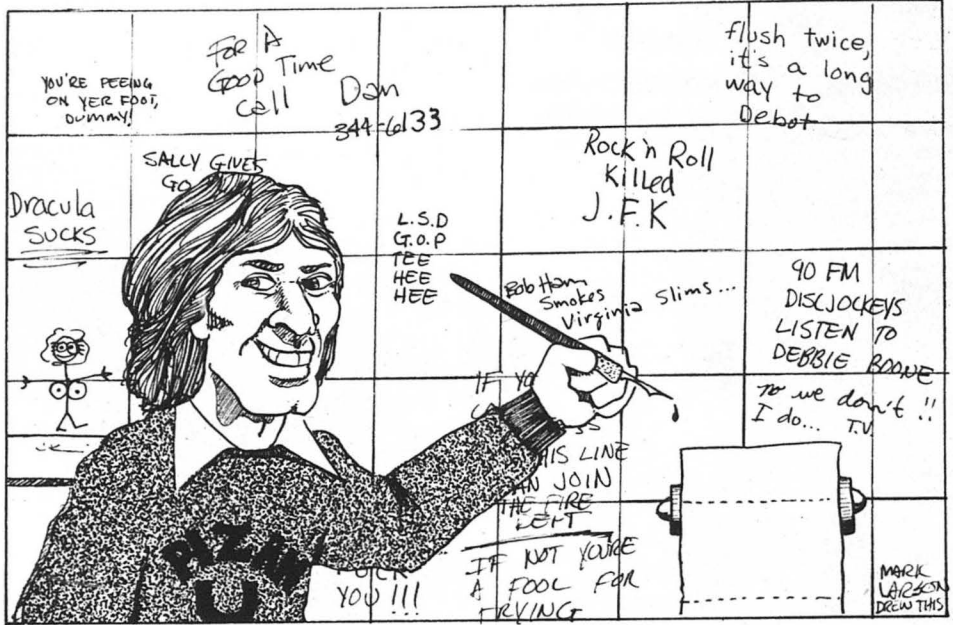 YOU'RE PEEING
ON YER FOOT,
DUMMY!
FOR A
GOOD Time
Call Dan
344-6133
flush twice,
it's a long
way to
Debot
SALLY GIVES
GO
Dracula
SUCKS
Rock 'n Roll
Killed
J.F.K
L.S.D
G.O.P
TEE
HEE
HEE
Bob Ham
Smokes
Virginia Slims...
90 FM
DISCJOCKEYS
LISTEN TO
DEBBIE BOONE
No we don't!!
I do... T.V.
IF YO
HIS LINE
AN JOIN
THE FIRE
LEFT
IF NOT YOU'RE
A FOOL FOR
TRYING
U
YOU !!!
MARK
LARSON
DREW THIS